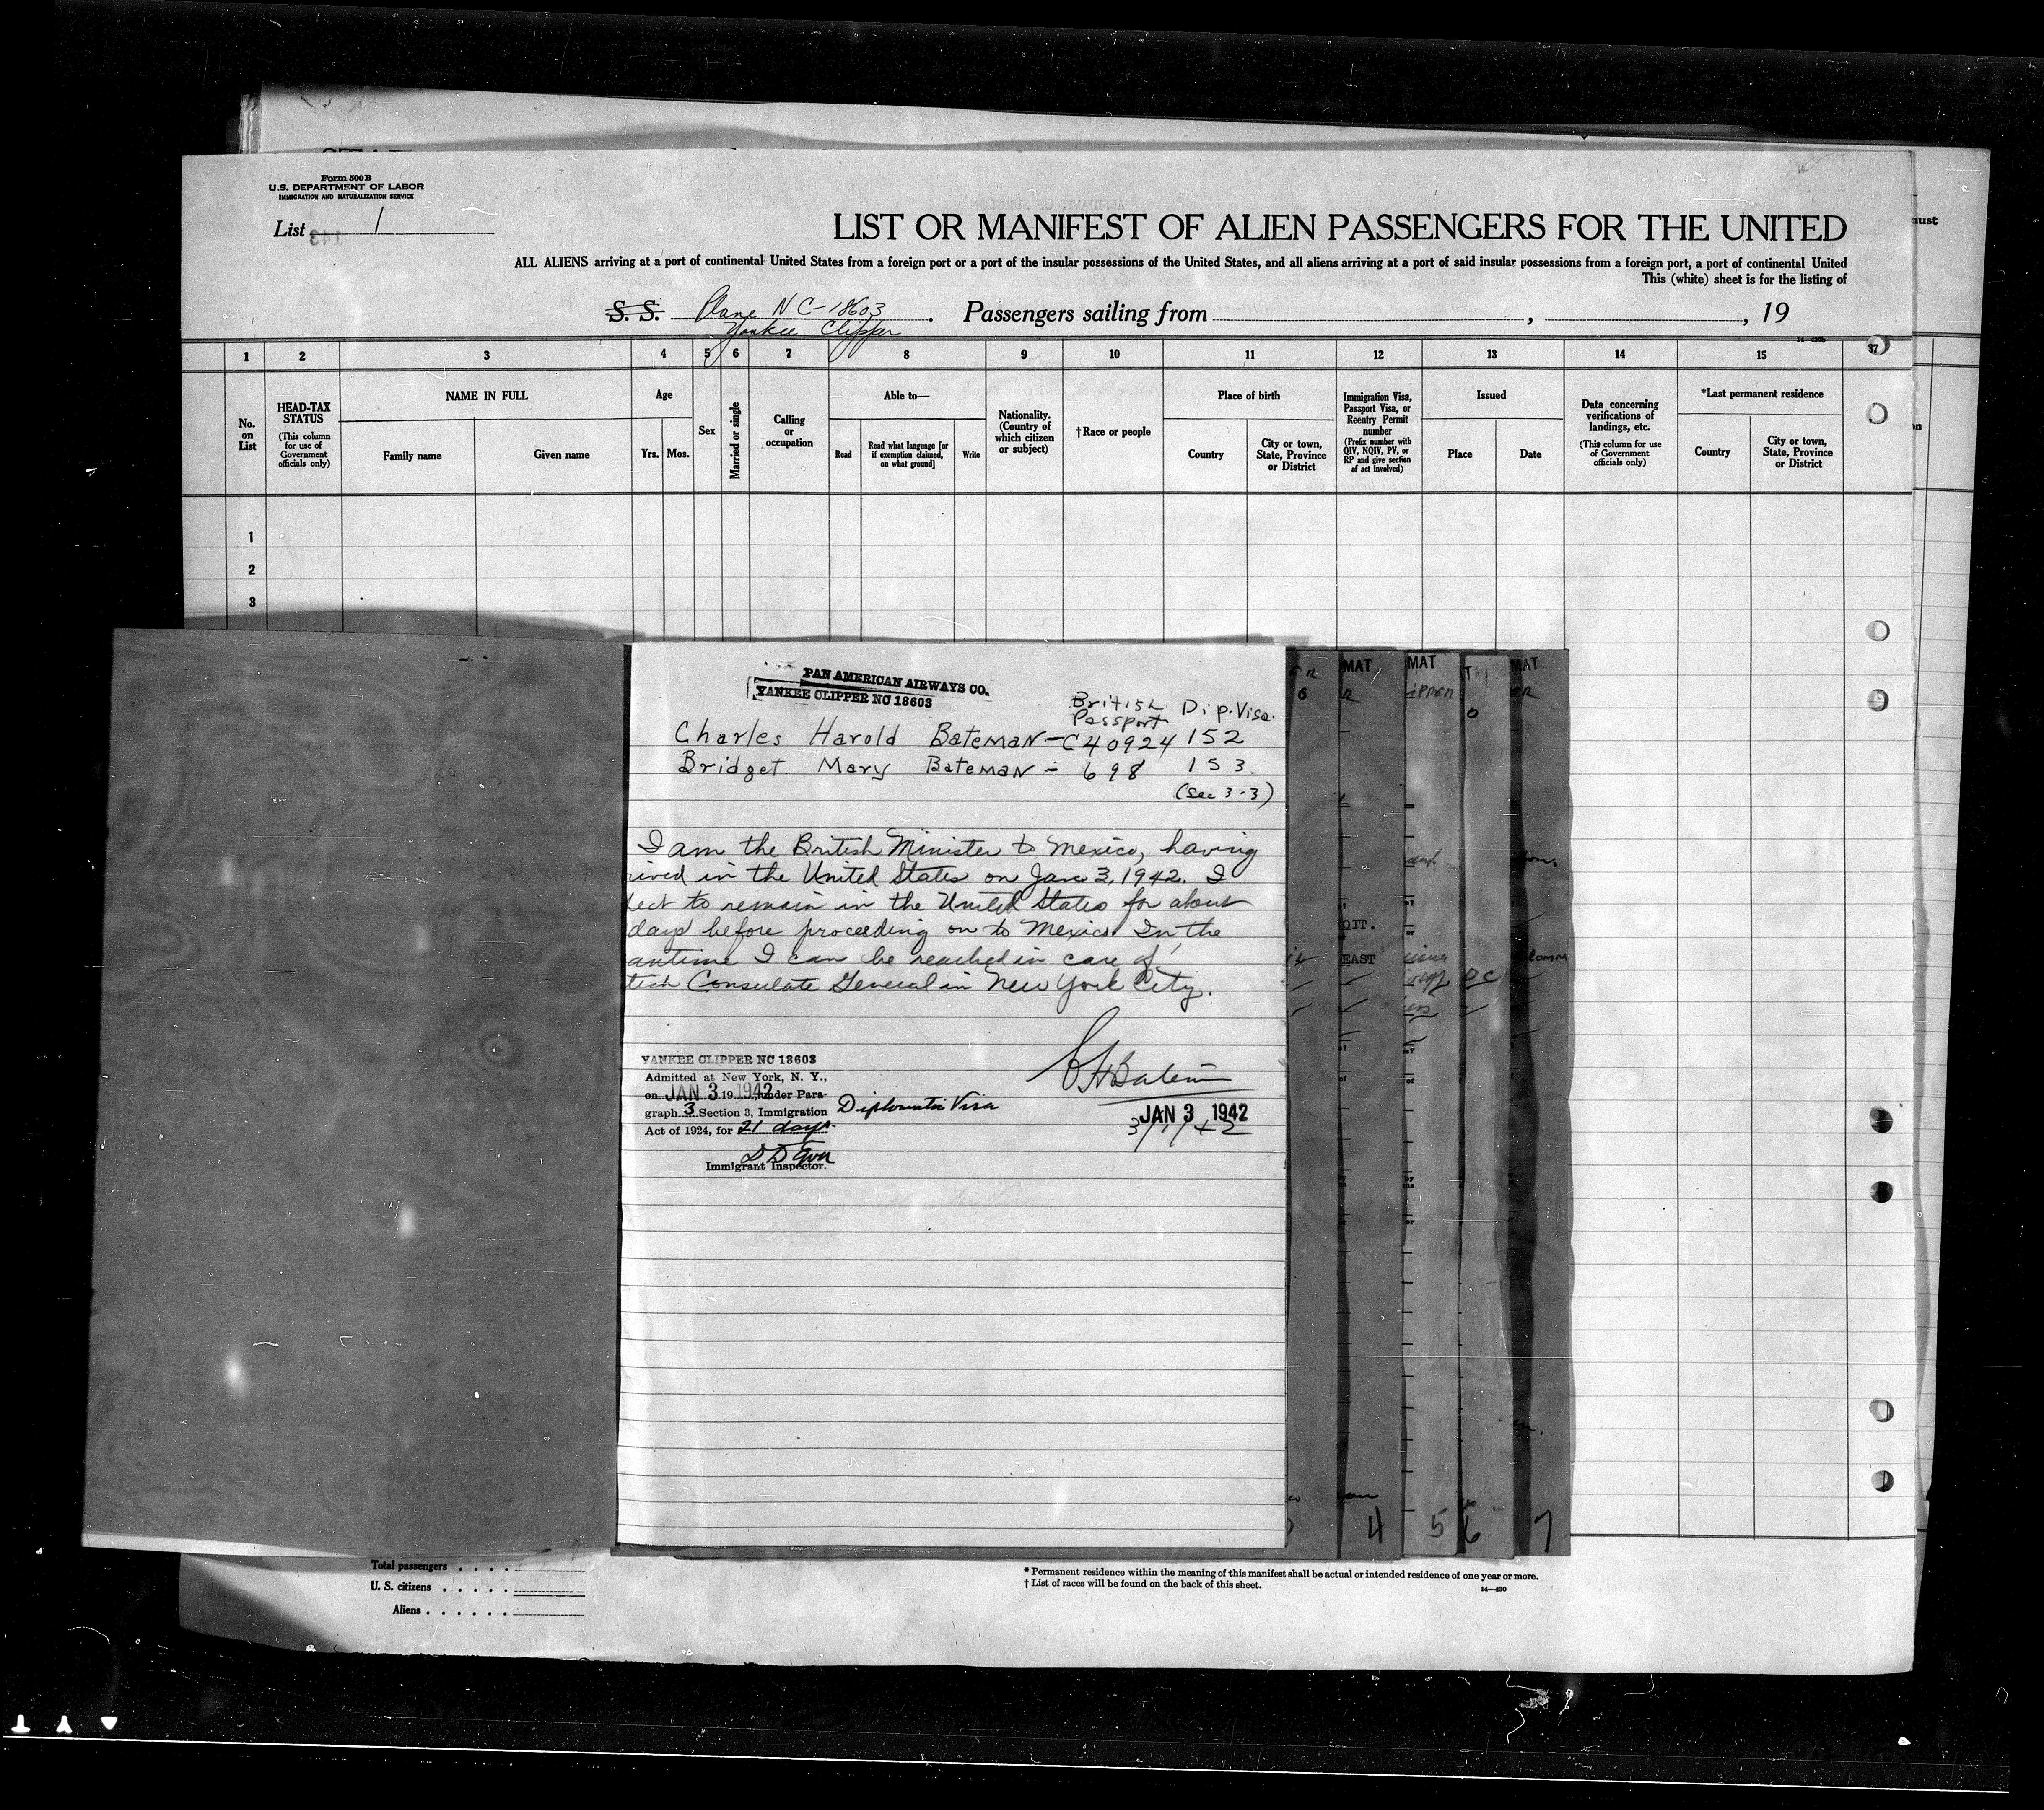 Form 500 B
U.S. DEPARTMENT OF LABOR
IMMIGRATION AND NATURALIZATION SERVICE
List 1
LIST OR MANIFEST OF ALIEN PASSENGERS FOR THE UNITED
ALL ALIENS arriving at a port of continental United States from a foreign port or a port of the insular possessions of the United States, and all aliens arriving at a port of said insular possessions from a foreign port, a port of continental United
This (white) sheet is for the listing of
S. S. Plane NC-18603 . Passengers sailing from , , 19
Yankee Clipper
1 2 3 4 5 6 7 8 9 10 11 12 13 14 15 37
No. on List
HEAD-TAX STATUS
(This column for use of Government officials only)
NAME IN FULL
Family name
Given name
Age
Yrs. Mos.
Sex
Married or single
Calling or occupation
Able to—
Read
Read what language [or if exemption claimed, on what ground]
Write
Nationality. (Country of which citizen or subject)
†Race or people
Place of birth
Country
City or town, State, Province or District
Immigration Visa, Passport Visa, or Reentry Permit number
(Prefix number with QIV, NQIV, PV, or RP and give section of act involved)
Issued
Place
Date
Data concerning verifications of landings, etc.
(This column for use of Government officials only)
*Last permanent residence
Country
City or town, State, Province or District
1
2
3
PAN AMERICAN AIRWAYS CO.
YANKEE CLIPPER NC 18603
British Dip. Visa.
Passport
Charles Harold Bateman - C40924 152
Bridget Mary Bateman - 698 153.
(Sec 3-3)
I am the British Minister to Mexico, having
rived in the United States on Jan 3, 1942. I
pect to remain in the United States for about
days before proceeding on to Mexico. In the
antime I can be reached in care of
tish Consulate General in New York City.
YANKEE CLIPPER NC 18603
Admitted at New York, N. Y.,
on JAN 3 1942 19 under Para-
graph 3 Section 3, Immigration Diplomatic Visa
Act of 1924, for 21 days.
Immigrant Inspector.
C H Bateman
JAN 3 1942
MAT MAT MAT
OIT.
EAST
4 5 6 7
Total passengers . . . .
U. S. citizens . . . . .
Aliens . . . . . .
* Permanent residence within the meaning of this manifest shall be actual or intended residence of one year or more.
† List of races will be found on the back of this sheet.
14—430